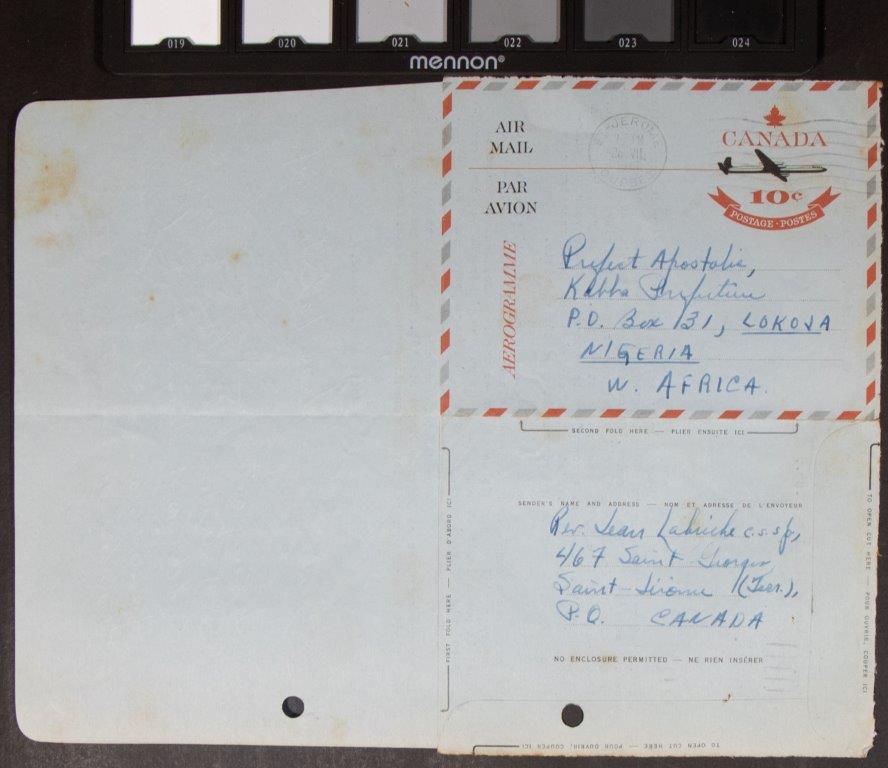 019 020 021 022 023 024
mennon®
AIR
MAIL
PAR
AVION
AEROGRAMME
ST-JEROME
QUEBEC
CANADA
10c
POSTAGE · POSTES
Prefect Apostolic,
Kabba Prefecture
P.O. Box 131, LOKOJA
NIGERIA
W. AFRICA.
SECOND FOLD HERE — PLIER ENSUITE ICI
SENDER'S NAME AND ADDRESS — NOM ET ADRESSE DE L'ENVOYEUR
Rev. Jean c.s.sp,
467 Saint Georges
Saint-Jérôme (Terr.),
P.Q. CANADA
NO ENCLOSURE PERMITTED — NE RIEN INSÉRER
FIRST FOLD HERE — PLIER D'ABORD ICI
TO OPEN CUT HERE — POUR OUVRIR, COUPER ICI
TO OPEN CUT HERE — POUR OUVRIR, COUPER ICI